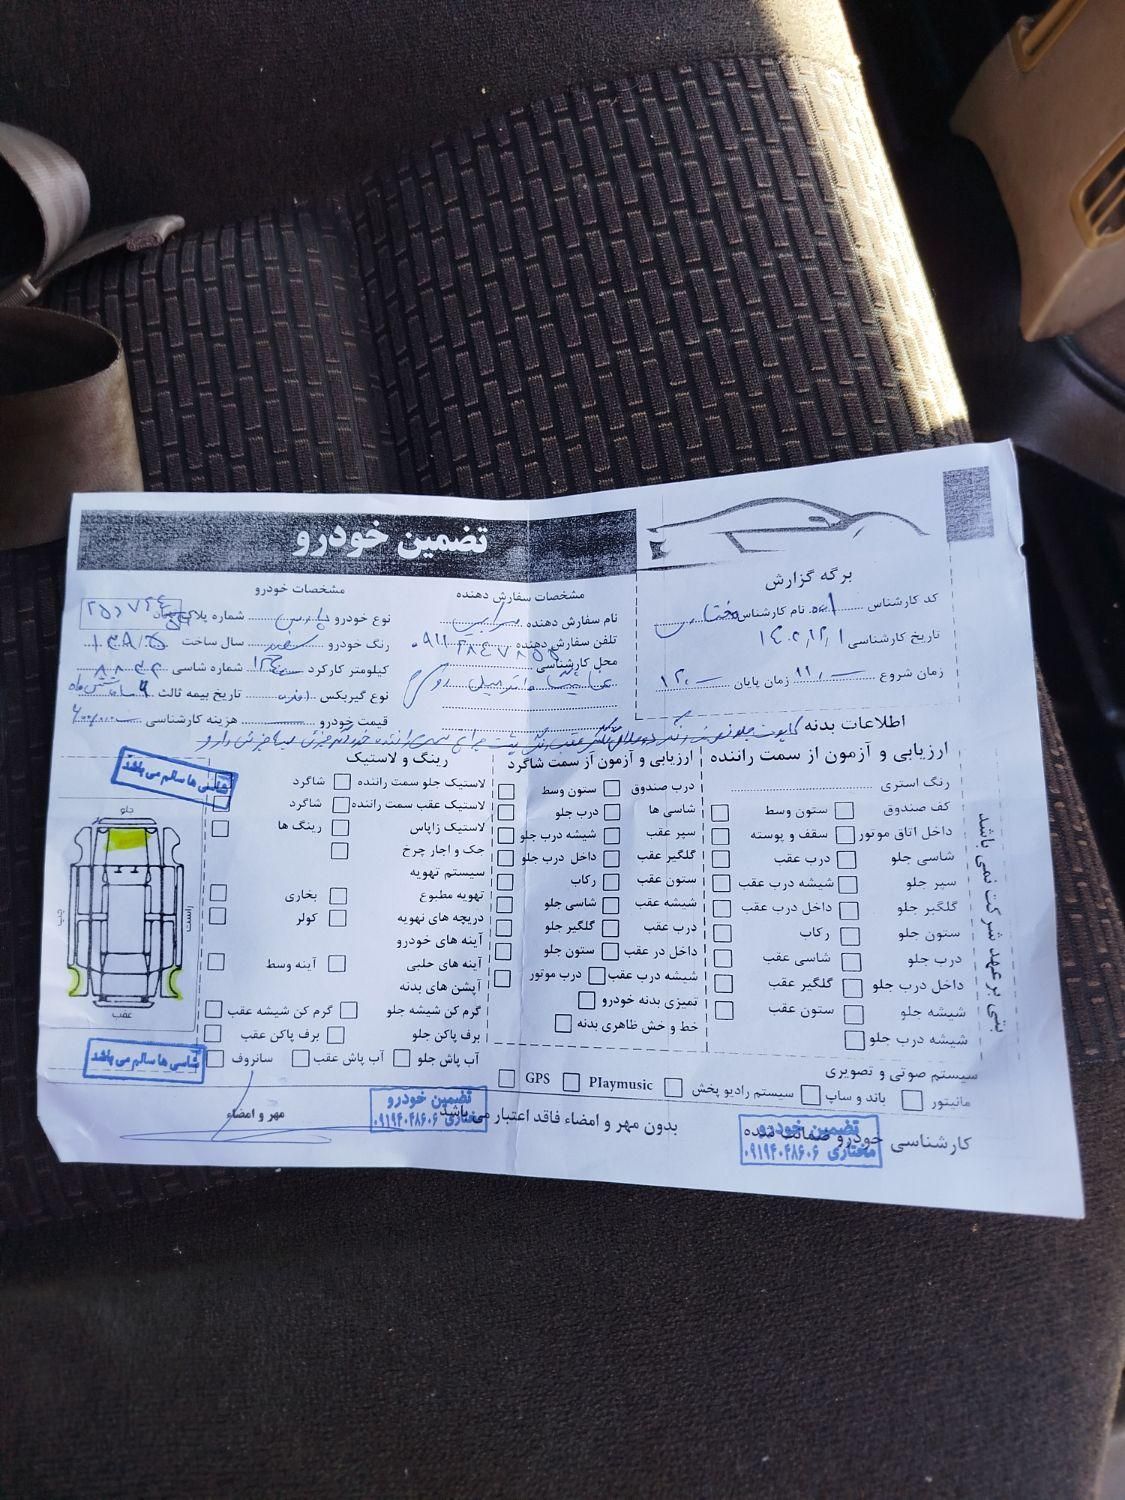 تضمین خودرو
برگه گزارش
کد کارشناس نام کارشناس مختاری
تاریخ کارشناسی
زمان شروع ۱۱ زمان پایان ۱۲
مشخصات سفارش دهنده
نام سفارش دهنده
تلفن سفارش دهنده
محل کارشناسی
مشخصات خودرو
نوع خودرو شماره پلاک
رنگ خودرو سفید سال ساخت ۱۳۸۵
کیلومتر کارکرد شماره شاسی
نوع گیربکس تاریخ بیمه ثالث
قیمت خودرو هزینه کارشناسی
اطلاعات بدنه
ارزیابی و آزمون از سمت راننده
رنگ استری
کف صندوق ستون وسط
داخل اتاق موتور سقف و پوسته
شاسی جلو درب عقب
سپر جلو شیشه درب عقب
گلگیر جلو داخل درب عقب
ستون جلو رکاب
درب جلو شاسی عقب
داخل درب جلو گلگیر عقب
شیشه جلو ستون عقب
شیشه درب جلو
ارزیابی و آزمون از سمت شاگرد
درب صندوق ستون وسط
شاسی ها درب جلو
سپر عقب شیشه درب جلو
گلگیر عقب داخل درب جلو
ستون عقب رکاب
شیشه عقب شاسی جلو
درب عقب گلگیر جلو
داخل در عقب ستون جلو
شیشه درب عقب درب موتور
تمیزی بدنه خودرو
خط و خش ظاهری بدنه
رینگ و لاستیک
لاستیک جلو سمت راننده شاگرد
لاستیک عقب سمت راننده شاگرد
لاستیک زاپاس رینگ ها
جک و اچار چرخ
سیستم تهویه
تهویه مطبوع بخاری
دریچه های تهویه کولر
آینه های خودرو
آینه های جلبی آینه وسط
آپشن های بدنه
گرم کن شیشه جلو گرم کن شیشه عقب
برف پاکن جلو برف پاکن عقب
آب پاش جلو آب پاش عقب سانروف
شاسی ها سالم می باشد
جلو
راست
چپ
عقب
شاسی ها سالم می باشد
سیستم صوتی و تصویری
مانیتور باند و ساب سیستم رادیو پخش Playmusic GPS
کارشناسی خودرو ضمانت شده
بدون مهر و امضاء فاقد اعتبار می باشد
مهر و امضاء
تضمین خودرو
مختاری ۰۹۱۹۴۰۴۸۶۰۶
تضمین خودرو
مختاری ۰۹۱۹۴۰۴۸۶۰۶
فنی بر عهد شرکت نمی باشد